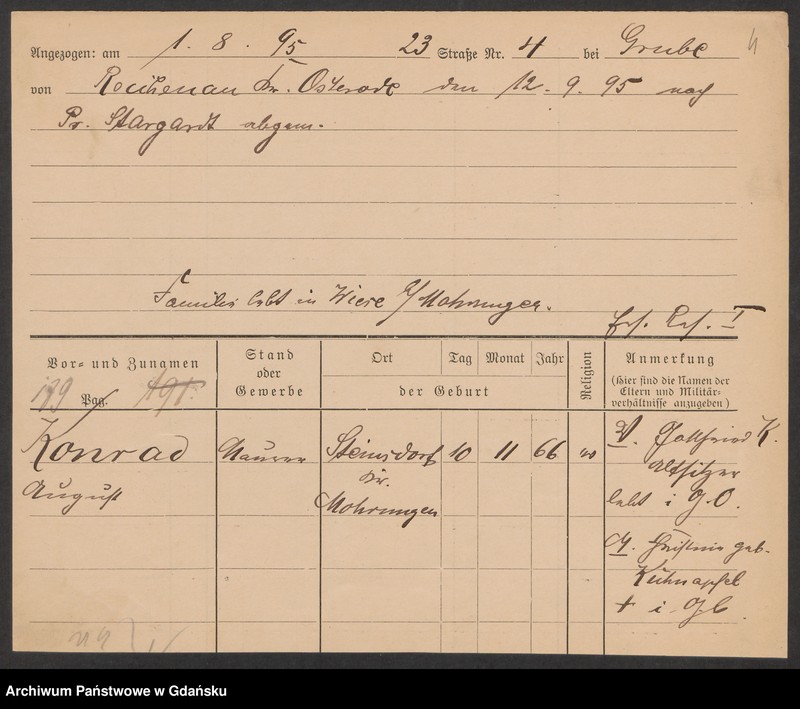 Angezogen: am 1. 8. 95 23 Straße Nr. 4 bei Grube
von Reichenau Kr. Osterode den 12. 9. 95 nach
Pr. Stargardt abgem.
Familie lebt in Wiese Mohrungen.
Ers. Res. I
Vor- und Zunamen
Pag.
Stand
oder
Gewerbe
Ort Tag Monat Jahr
der Geburt
Religion
Anmerkung
(Hier sind die Namen der
Eltern und Militär-
verhältnisse anzugeben)
Konrad Maurer Steinsdorf 10 11 66 V. Gottfried K.
August Kr. Altsitzer
Mohrungen lebt i. G. O.
M. Christine geb.
Kühnapfel
+ i. G. O.
Archiwum Państwowe w Gdańsku